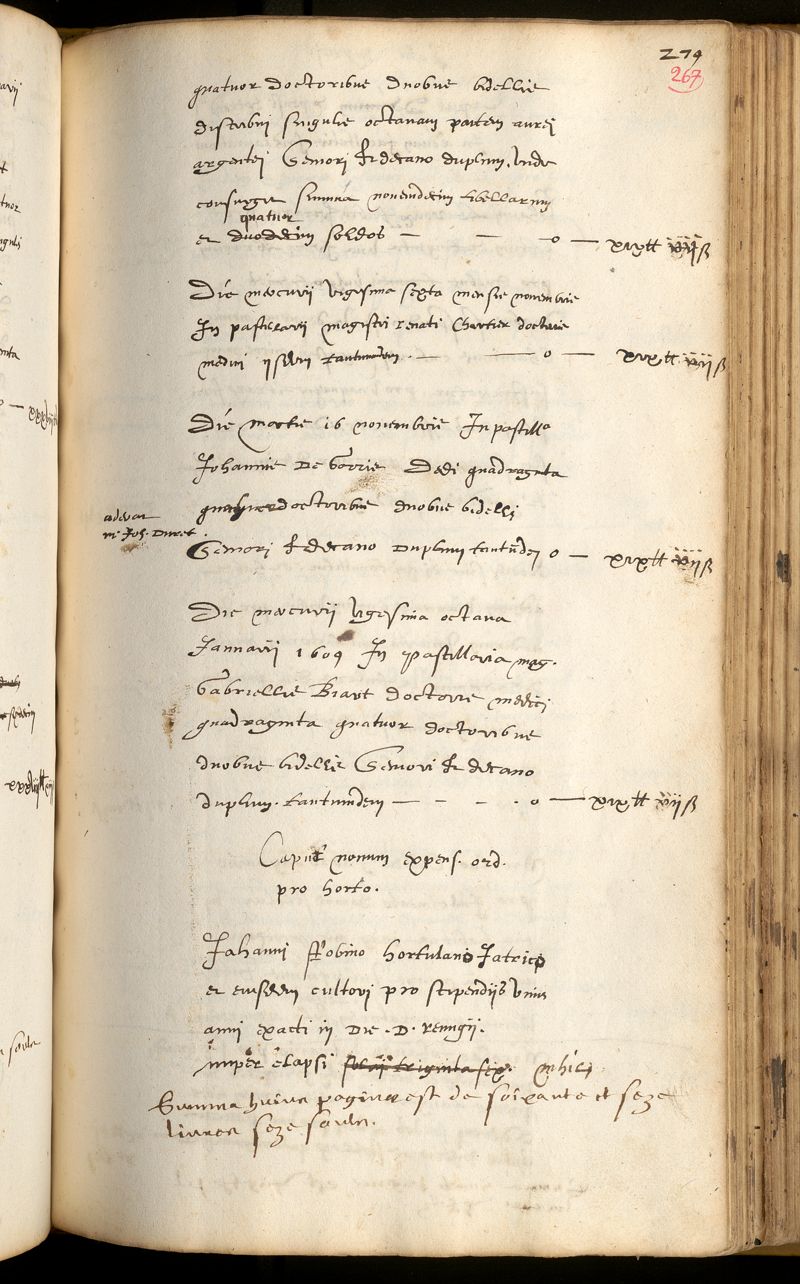 279
267
quatuor doctoribus duobus bidellis
distribui singulis octavam partem aurei
argentei Seniori & decano duplum, unde
consurgit summa novemdecim libellarum
quatuor
et duodecim soldos — — o — xix₶ iiii ß
Die mercurii vigesima sexta mensis novembris
In pastillaria magistri renati Chartier doctoris
medici iisdem tantundem — — o — xix₶ iiii ß
Die martis 16 novembris In pastilla
Johannis De Gorris Dedi quadraginta
quatuor doctoribus duobus bidellis
Joh. Duret
Seniori & decano Duplum tantundem o — xix₶ iiii ß
Die mercurii vigesima octava
Januarii 1609 In pastillaria mag.
Gabriellis Biart doctoris medici
quadraginta quatuor doctoribus
duobus bidellis Seniori & decano
duplum. tantundem — — - . o — xix₶ iiii ß
Caput nonum expens. ord.
pro horto.
Johanni Robino hortulano Iatrico
et eiusdem cultori pro stipendiis unius
anni exacti in Die . D . remigii .
nuper elapsi soldi triginta sex. nihil
Summa huius paginae est de soixante et seze
livres seze soulz.